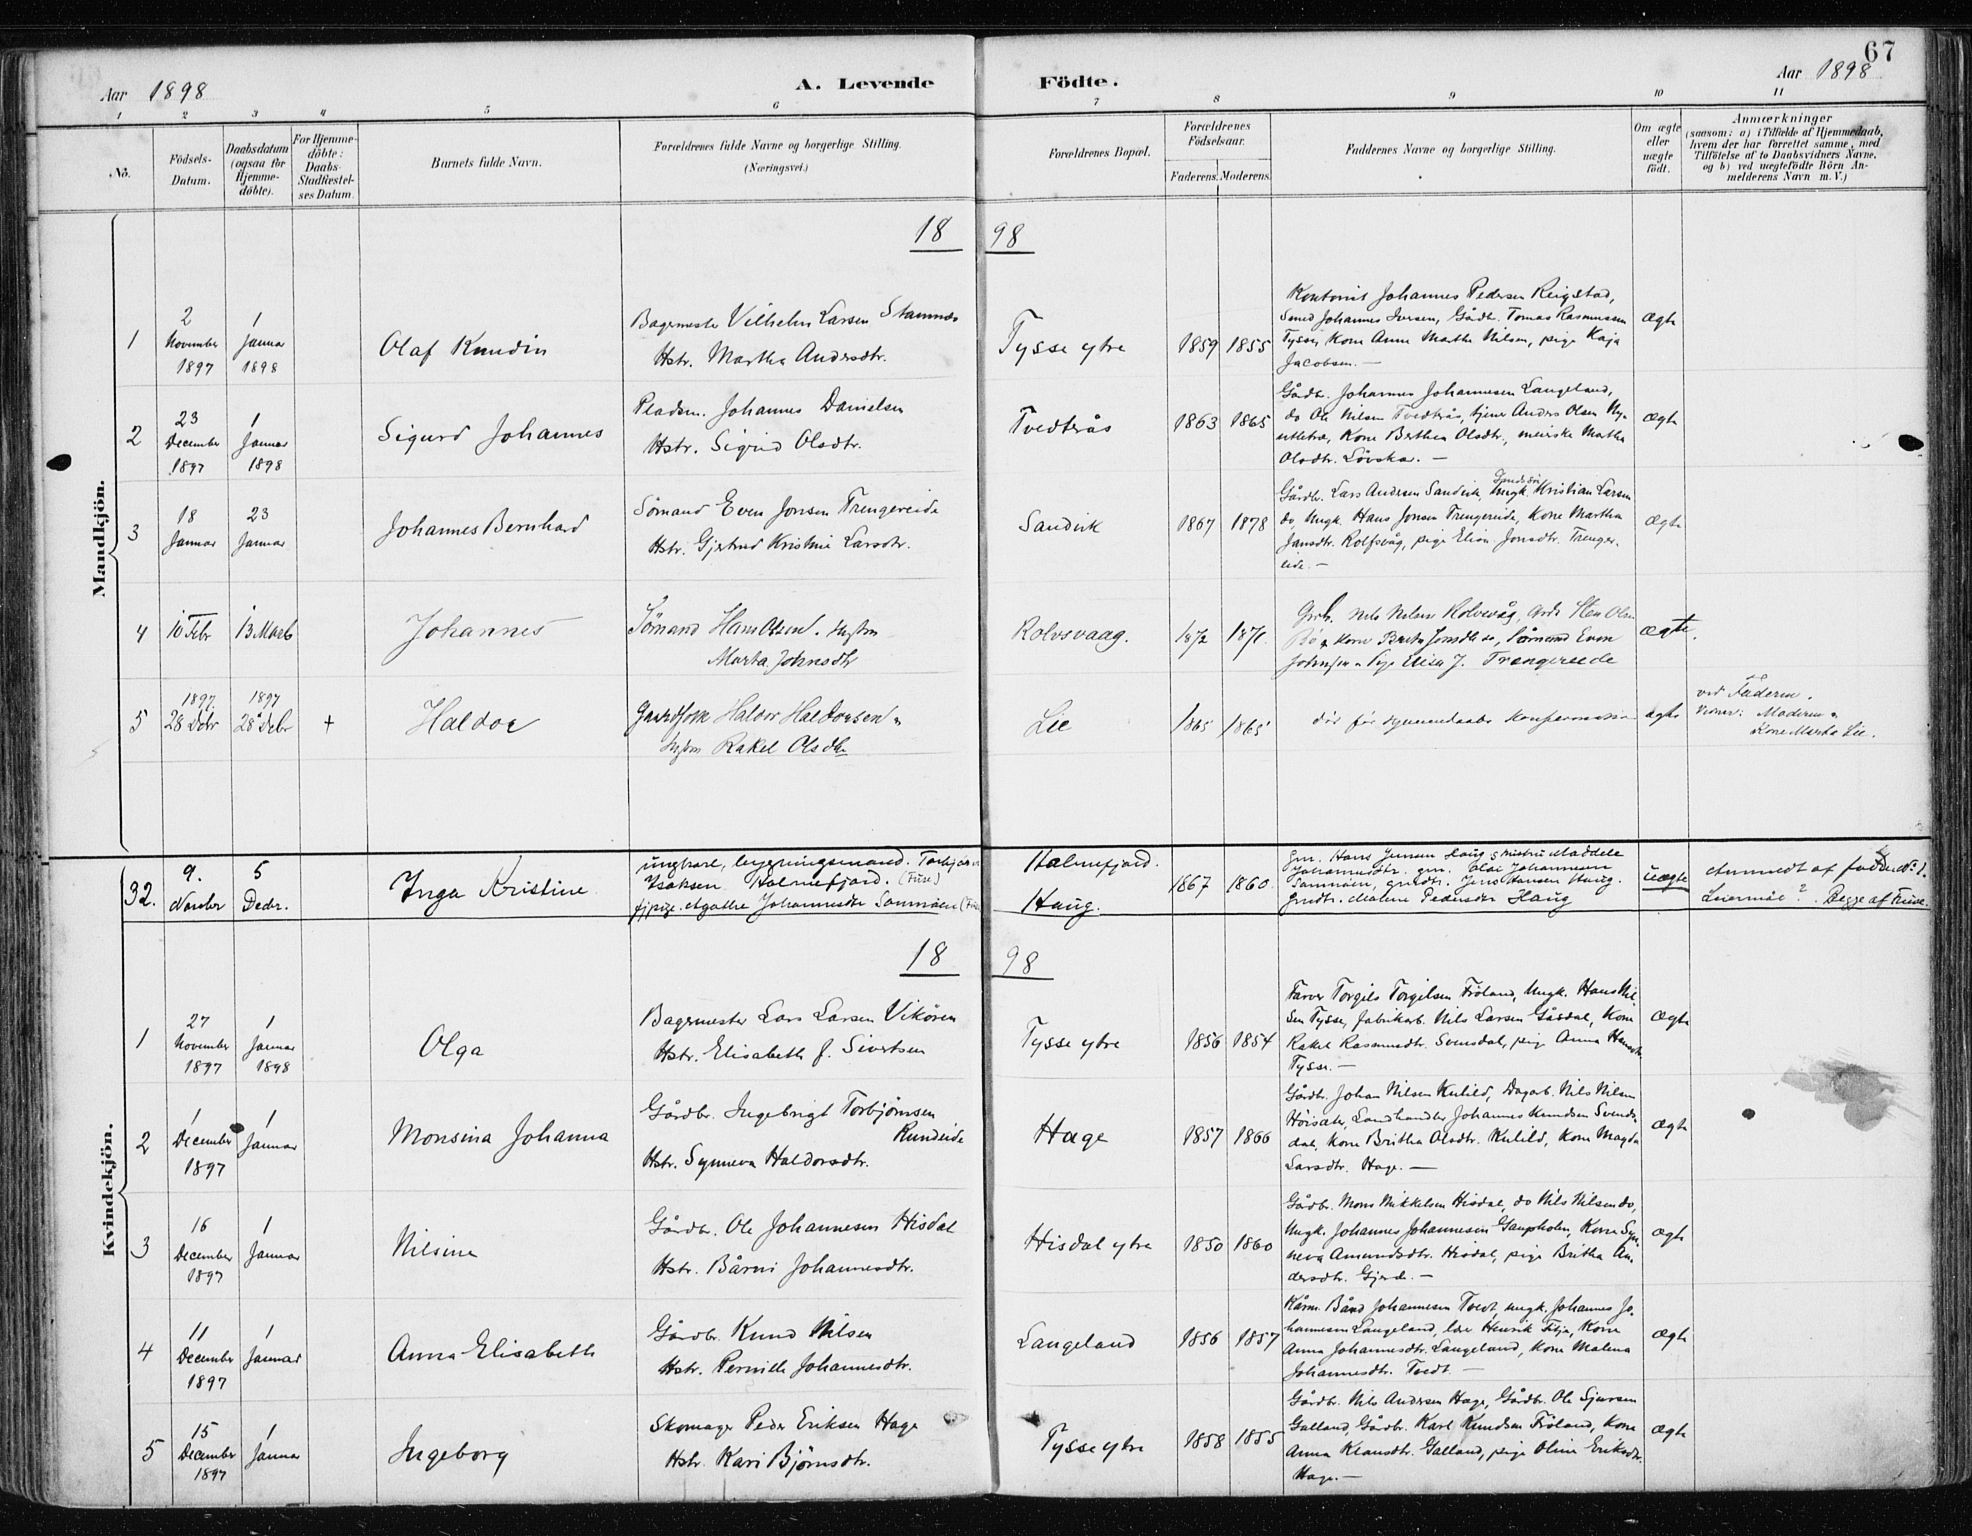 67
Aar 1898
A. Levende
Födte.
Aar 1898
1 2 3 4 5 6 7 8 9 10 11
No.
Födsels-
Datum.
Daabsdatum
(ogsaa for
Hjemme-
döbte).
For Hjemme-
döbte:
Daabs
Stadfestel-
ses Datum.
Barnets fulde Navn.
Forældrenes fulde Navne og borgerlige Stilling.
(Næringsvei.)
Forældrenes Bopæl.
Forældrenes
Födselsaar.
Faderens. Moderens.
Faddernes Navne og borgerlige Stilling.
Om ægte
eller
uægte
födt.
Anmærkninger
(saasom: a) i Tilfælde af Hjemmedaab,
hvem der har forrettet samme, med
Tilföielse af to Daabsvidners Navne,
og b) ved uægtefödte Börn An-
melderens Navn m. V.)
Mandkjön.
18 98
1
2
November
1897
1
Januar
1898
Olaf Knudin
Bagermester Vilhelm Larsen Stamnæs
Hstr. Martha Andersdtr.
Tysse ytre
1859 1855
Kontorist Johannes Pedersen Reigstad,
Smed Johannes Iversen, Gårdbr. Tomas Rasmussen
Tysse, Kone Anne Marthe Nilsen, pige Kaja
Jacobsen. —
Ægte
2
23
December
1897
1
Januar
1898
Sigurd Johannes
Pladsm. Johannes Danielsen
Hstr. Sigrid Olsdtr.
Tvedterås
1863 1865
Gårdbr. Johannes Johannesen Langeland,
do Ole Nilsen Tvedterås, tjener Anders Olsen
Kone Berthea Olsdtr., meierske Martha
Olsdtr. —
Ægte
3
18
Januar
23
Januar
Johannes Bernhard
Sömand Even Jonsen Trengereide
Hstr. Gjertrud Kristine Larsdtr.
Sandvik
1867 1878
Gårdbr. Lars Andersen Sandvik, Ungk. Kristian Larsen
do, Ungk. Hans Jonsen Trengereide, Kone Martha
Jansdtr. Rolfsvåg, pige Elisa Jonsdtr. Trenger-
eide. —
Ægte
4
10 Febr
13 Marts
Johannes
Sömand Hans Olsen. Hustru
Marta Johnsdtr
Rolvsvaag.
1872 1871
Grb. Nils Nilsen Rolvsvåg, Sten Olsen
Bö, Kone Jonsdtr do, Sömand Even
Johnsen, Pige Elisa J. Trengereide
Ægte.
5
1897
28 Debr
1897
28 Debr
+
Haldor
Gaardfolk Haldor Haldorsen
Hustru Rakel Olsdtr
Lie
1865 1865
död för daabs konfirmation
ægte
ved Faderen.
Vidner: Moderen
Kone Marta Lie.
32.
9.
Novbr
5
Decbr.
Inga Kristine
ungkarl, bygningsmand. Torbjørn
Isaksen Holmefjord. (Fuse)
pige. Agathe Johannesdtr Samnöen (Fuse)
Holmefjord.
Haug.
1867 1860
Gm. Hans Jensen Haug, Hustru Maddele
Johannesdtr. gm. Olai Johannesen
Samnöen, grdtr. Jens Hansen Haug.
grdtr. Malene Pedersdtr Haug
uægte
Anmeldt af faderen No 1.
Leiermål? Begge af Fuse.
Kvindekjön.
18 98
1
27
November
1897
1
Januar
1898
Olga
Bagermester Lars Larsen Vikören
Hstr. Elisabeth f. Sivertsen
Tysse ytre
1856 1854
Farver Torgils Torgilsen Fröland, Ungk. Hans Nil-
sen Tysse, fabrikarb. Nils Larsen Gåsdal, Kone
Rakel Rasmusdtr. Svensdal, pige Anna Hansdtr.
Tysse. —
Ægte
2
1
December
1897
1
Januar
Monsina Johanna
Gårdbr. Ingebrigt Torbjörnsen
Rundeide
Hstr. Synneva Haldorsdtr.
Hage
1857 1866
Gårdbr. Johan Nilsen Kulild, Dagarb. Nils Nilsen
Höisæter, Landhandler Johannes Knudsen Svends-
dal, Kone Britha Olsdtr. Kulild, Kone Magda
Larsdtr. Hage. —
Ægte
3
16
December
1897
1
Januar
Nilsine
Gårdbr. Ole Johannesen Hisdal
Hstr. Bårni Johannesdtr.
Hisdal ytre
1850 1860
Gårdbr. Mons Mikkelsen Hisdal, do Nils Nilsen do,
Ungk. Johannes Johannesen Gaupholm, Kone Syn-
neva Amundsdtr. Hisdal, pige Britha An-
dersdtr. Gjerde. —
Ægte
4
11
December
1897
1
Januar
Anna Elisabeth
Gårdbr. Knud Nilsen
Hstr. Pernille Johannesdtr.
Langeland
1856 1857
Kårm. Bård Johannesen Tvedt, ungk. Johannes Jo-
hannesen Langeland, Henrik Tilja, Kone
Anna Johannesdtr. Langeland, Kone Malena
Johannesdtr. Tvedt —
Ægte
5
15
December
1897
1
Januar
Ingeborg
Skomager Peder Eriksen Hage
Hstr. Kari Björnsdtr.
Tysse ytre
1858 1855
Gårdbr. Nils Andersen Hage, Gårdbr. Ole Sjursen
Galland, Gårdbr. Karl Knudsen Fröland, Kone
Anna Klausdtr. Galland, pige Oline Eriksdtr.
Hage. —
Ægte